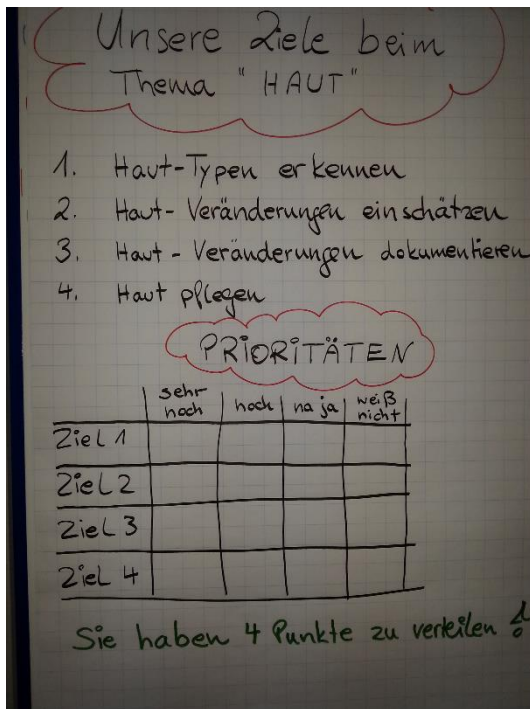 Unsere Ziele beim
Thema "HAUT"
1. Haut-Typen erkennen
2. Haut-Veränderungen einschätzen
3. Haut-Veränderungen dokumentieren
4. Haut pflegen
PRiORiTÄTEN
sehr hoch | hoch | na ja | weiß nicht
Ziel 1
Ziel 2
Ziel 3
Ziel 4
Sie haben 4 Punkte zu verteilen !